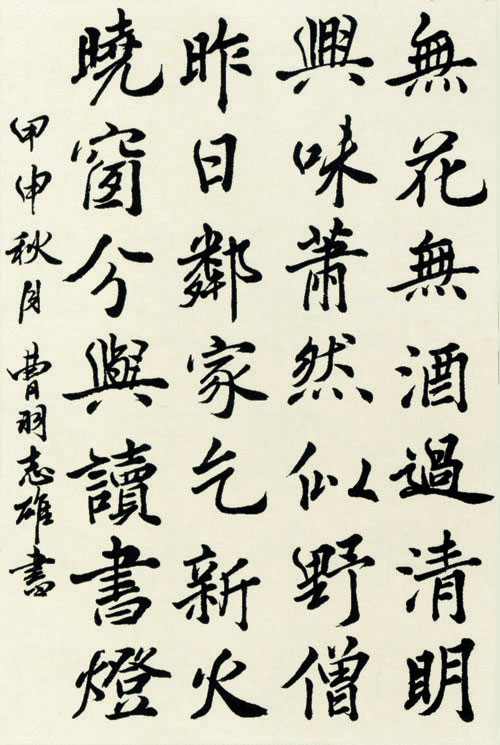 無花無酒過清明
興味蕭然似野僧
昨日鄰家乞新火
曉窗兮與讀書燈
甲申秋月曹羽志雄書